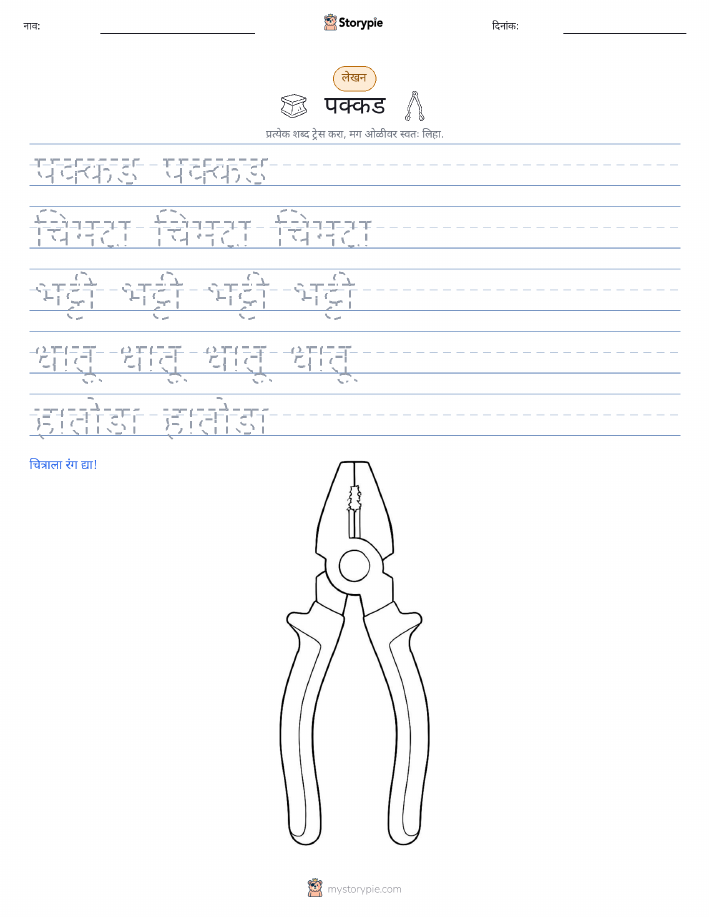 नाव: Storypie दिनांक:
लेखन
पक्कड
प्रत्येक शब्द ट्रेस करा, मग ओळीवर स्वतः लिहा.
पक्कड पक्कड
चिमटा चिमटा चिमटा
भट्टी भट्टी भट्टी भट्टी
धातू धातू धातू धातू
हातोडा हातोडा
चित्राला रंग द्या!
mystorypie.com